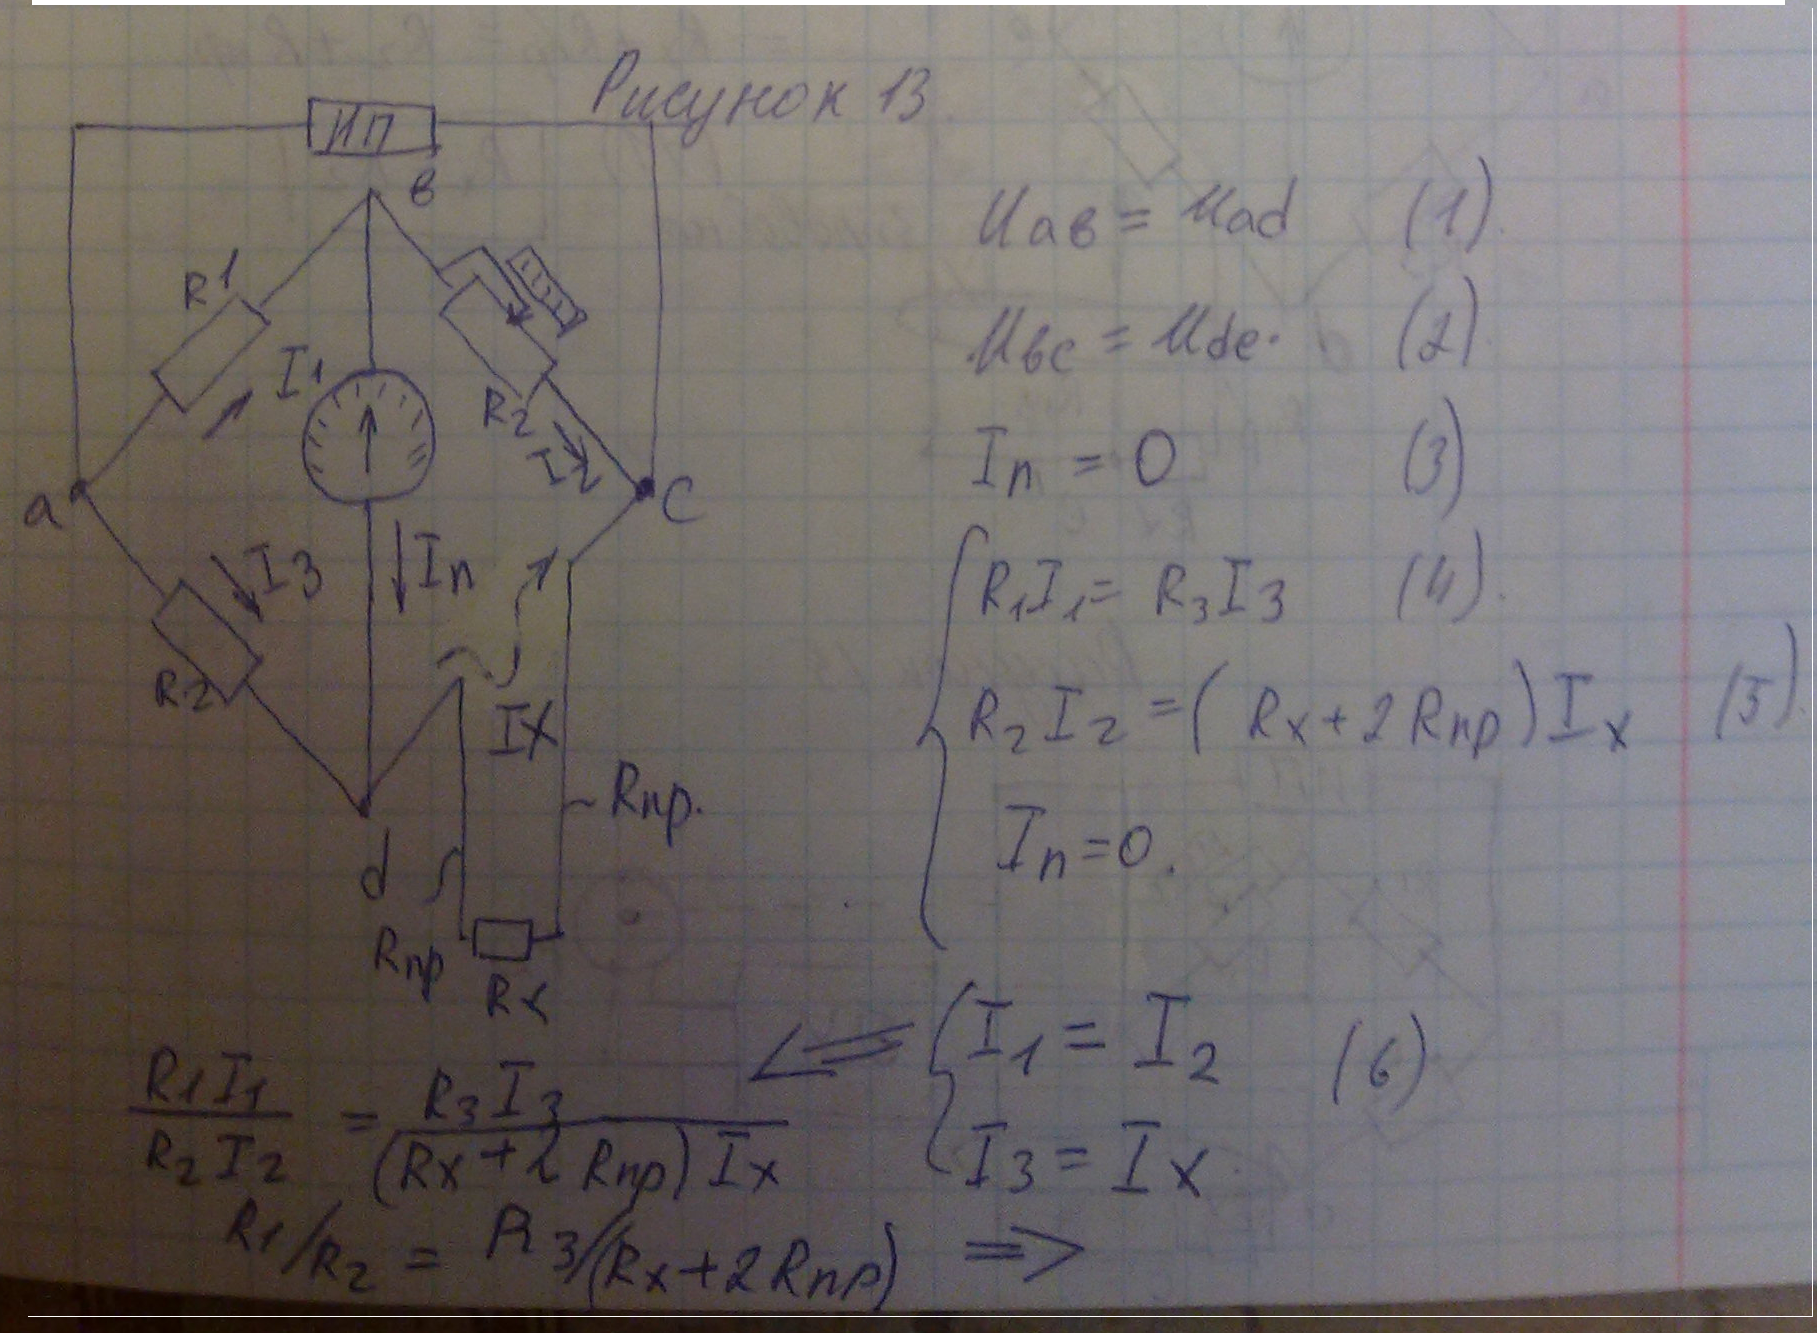 Рисунок 13
ИП
в
R1
I1
R2
I2
a
C
I3
Iп
R2
Ix
Rпр.
d
Rпр
Rx
Uaв = Uad (1).
Uвc = Ude. (2).
Iп = 0 (3)
R1I1 = R3I3 (4).
R2I2 = (Rx+2Rпр)Ix (5).
Iп=0.
I1 = I2 (6)
I3 = Ix.
R1I1 / R2I2 = R3I3 / (Rx+2Rпр)Ix
R1/R2 = R3/(Rx+2Rпр) =>